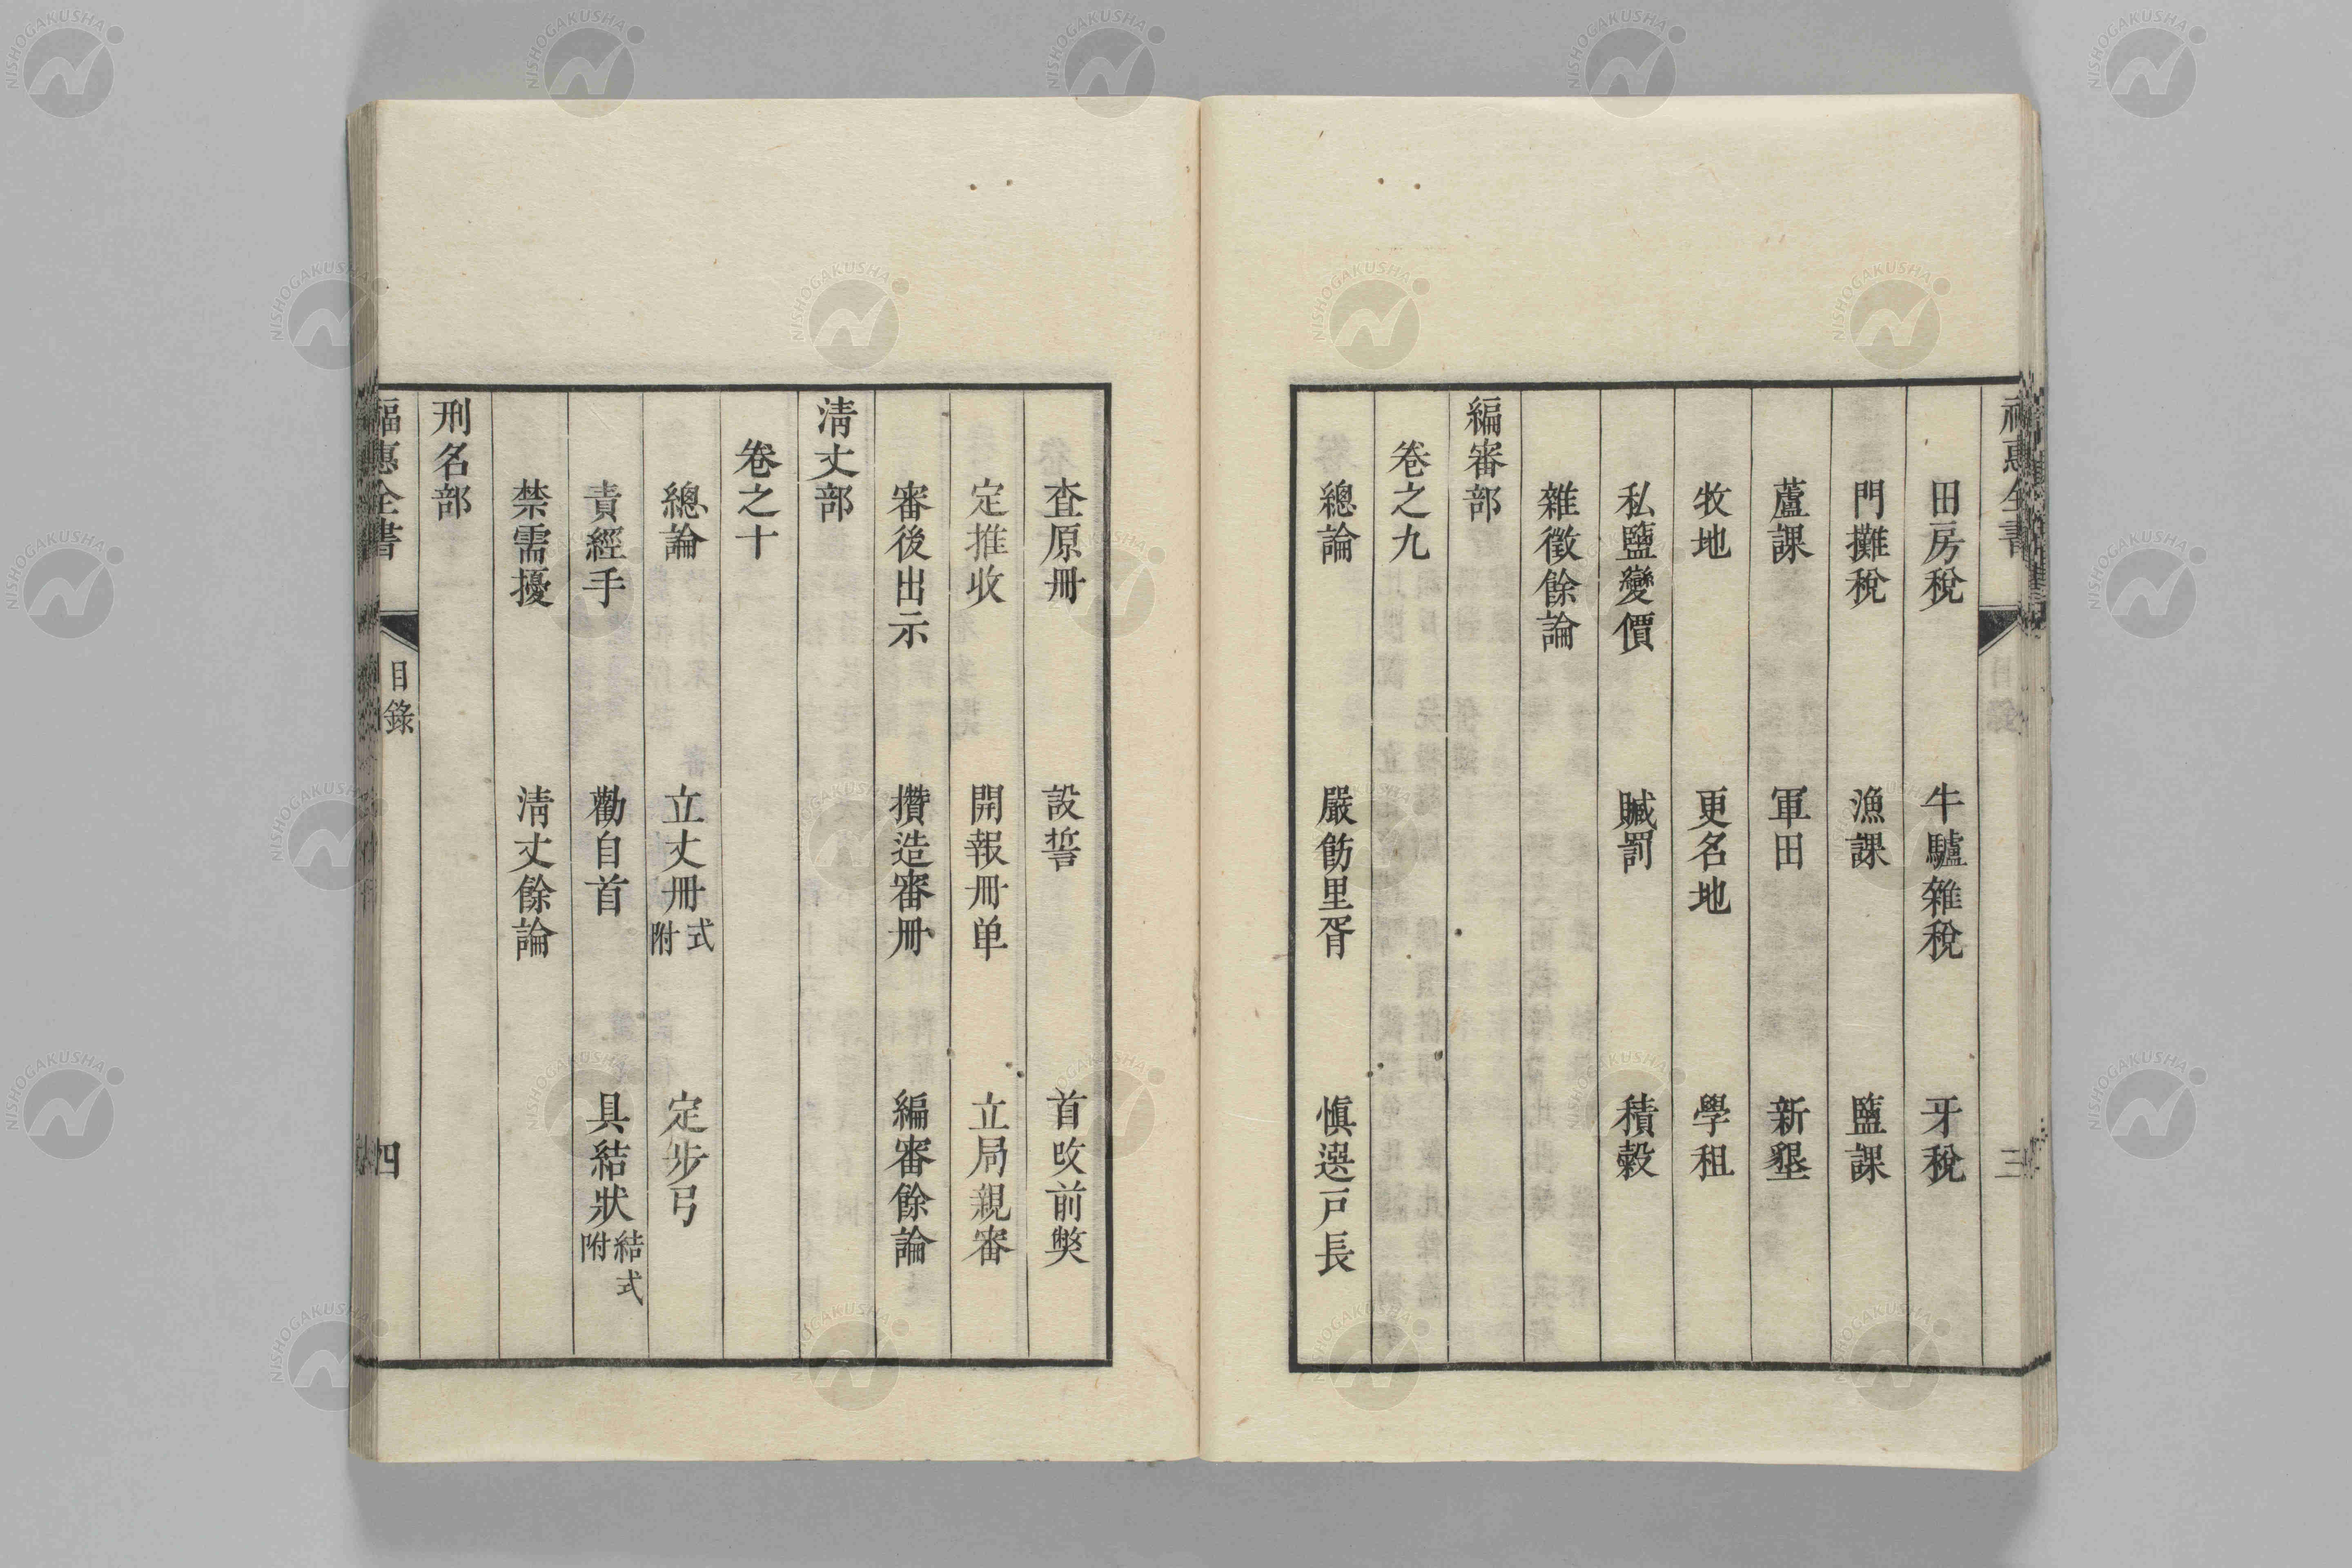 福惠全書 目錄 三
田房稅 牛驢雜稅 牙稅
門攤稅 漁課 鹽課
蘆課 軍田 新墾
牧地 更名地 學租
私鹽變價 贓罰 積穀
雜徵餘論
編審部
卷之九
總論 嚴飭里胥 慎選戸長
查原冊 設誓 首改前獘
定推收 開報冊单 立局親審
審後出示 攢造審冊 編審餘論
清丈部
卷之十
總論 立丈冊式附 定步弓
責經手 勸自首 具結狀結式附
禁需擾 清丈餘論
刑名部
福惠全書 目錄 四
NISHOGAKUSHA